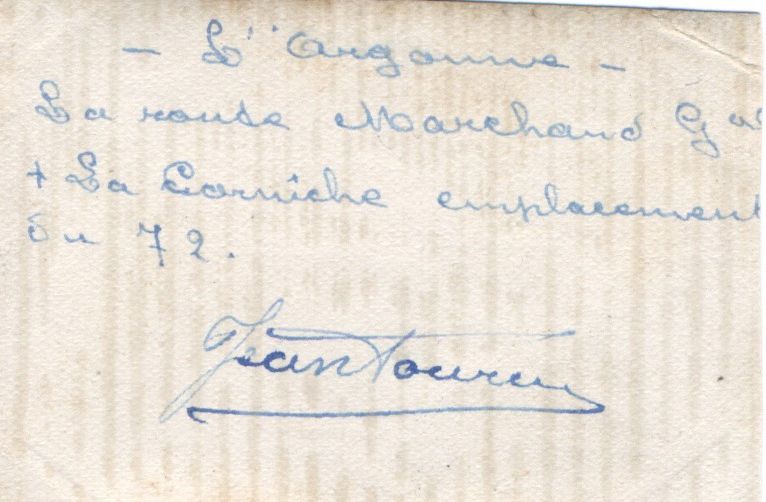 - L'' Argonne -
La route Marchand Gal
+ La Corniche emplacement
du 72.
Jean Tourin